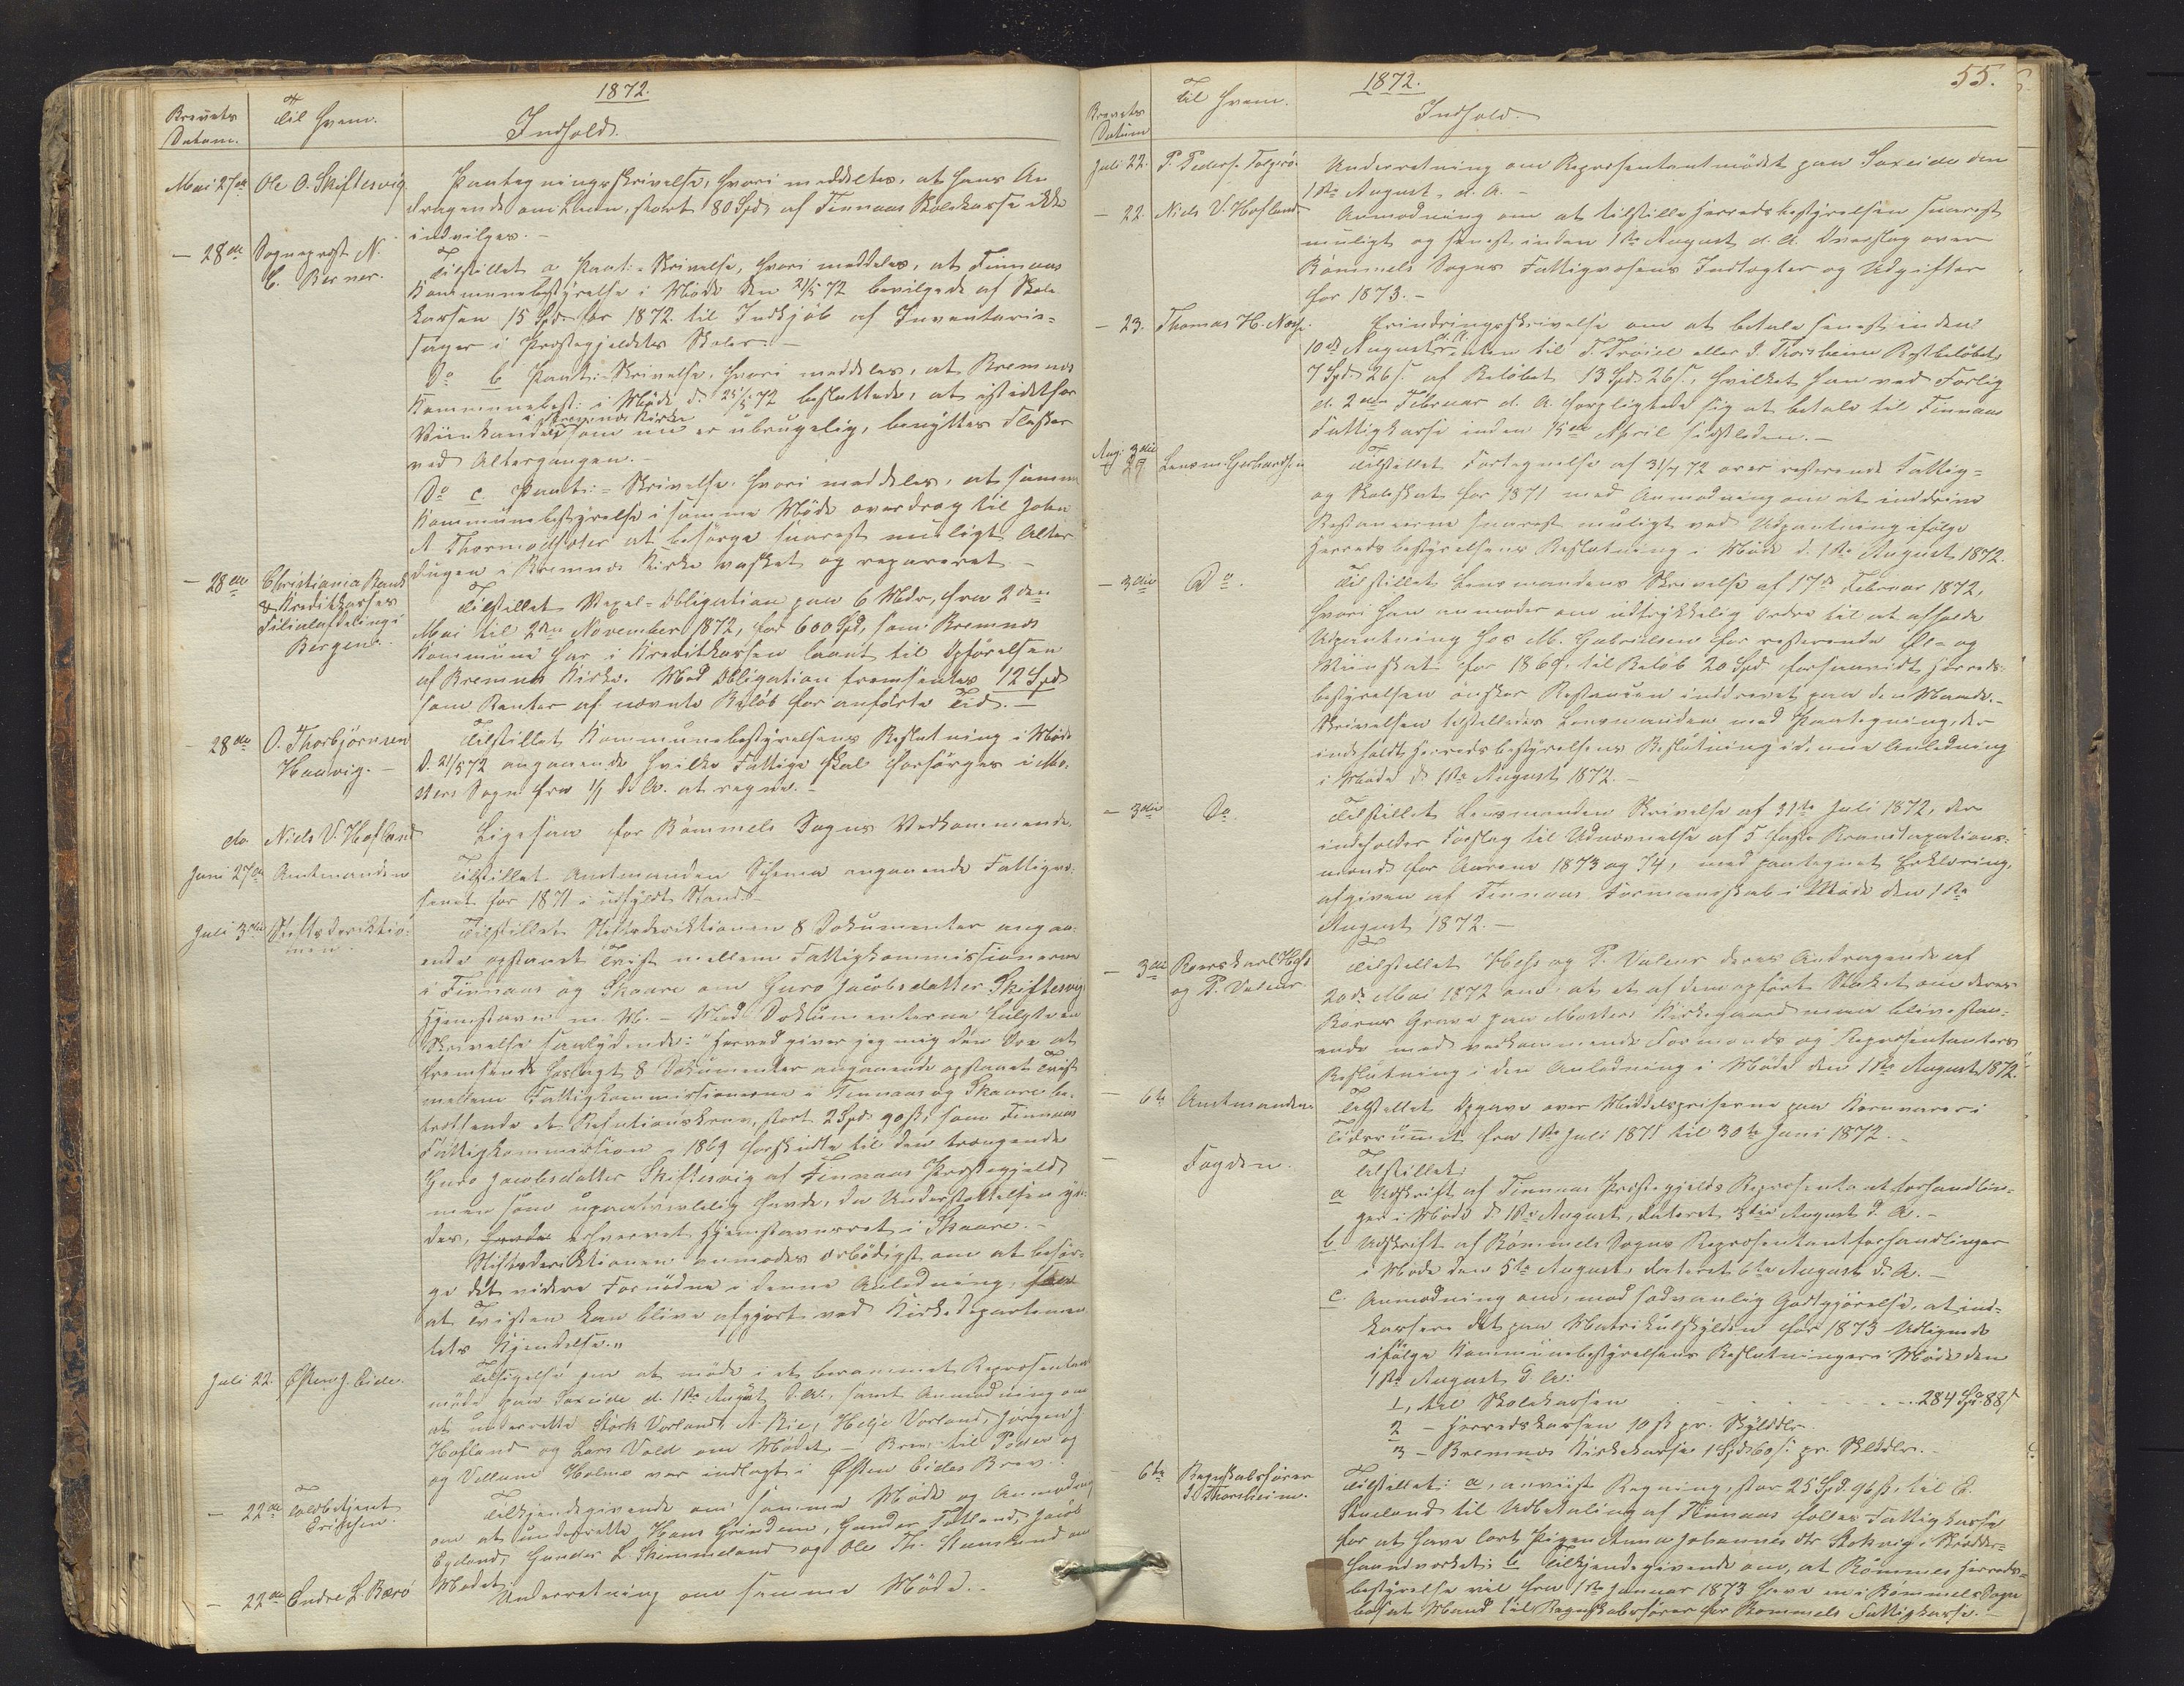 1872.
Brevets Datum.
Til Hvem.
Indhold.
Mai 27de Ole O. Skiftesvig. Paategningsskrivelse, hvori meddeltes, at hans An-
dragende om Laan, stort 80 Spd af Finnaas Skolekasse ikke
indvilges. -
- 28de Sogneprest N. C. Berner.
Tilstillet a Paat:-Skrivelse, hvori meddeles, at Finnaas
Kommunebestyrelse i Møde den 21/5 72 bevilgede af Skole-
kassen 15 Spd for 1872 til Indkjøb af Inventarie-
sager i Prestegjeldets Skoler. -
Do b Paat:-Skrivelse, hvori meddeles, at Bremnes
Kommunebest: i Møde d. 21/5 72 besluttede, at istedetfor
Viinkanden i Bremnes Kirke som nu er ubrugelig, benyttes Flasker
ved Altergangen. -
Do c. Paat:-Skrivelse, hvori meddeles, at samme
Kommunebestyrelse i samme Møde overdrog til John
A Thormodsæter at besørge snarest muligt Alter-
dugen i Bremnes Kirke vasket og repareret. -
- 28de Christiania Bank & Kreditkasses Filialafdeling i Bergen.
Tilstillet Vexel-Obligation paa 6 Mdr, fra 2den
Mai til 2den November 1872, for 600 Spd, som Bremnes
Kommune har i Kreditkassen laant til Opførelsen
af Bremnes Kirke. Med Obligation fremsendtes 12 Spd
som Renter af nævnte Beløb for anførte Tid. -
28de O. Thorbjørnsen Hauvig. -
Tilstillet Kommunebestyrelsens Beslutning i Møde
d. 21/5 72 angaaende hvilke Fattige skal forsørges i Mo-
sters Sogn fra 1/1 d. A. at regne. -
do Niels V. Hofland Ligesaa for Bømmels Sogns Vedkommende.
Juni 27de Amtmanden Tilstillet Amtmanden Schema angaaende Fattigvæ-
senet for 1871 i udfyldt Stand. -
Juli 3die Stiftsdirektio-nen.
Tilstillet Stiftsdirektionen 8 Dokumenter angaa-
ende opstaaet Tvist mellem Fattigkommissionerne
i Finnaas og Skaare om Guro Jacobsdatter Skiftesvigs
Hjemstavn m. M. - Med Dokumenterne fulgte en
Skrivelse saalydende: "Herved giver jeg mig den Ære at
fremsende hoslagt 8 Dokumenter angaaende opstaaet Tvist
mellem Fattigkommissionerne i Finnaas og Skaare be-
træffende et Refusionskrav, stort 2 Spd 90 ß, som Finnaas
Fattigkommission i 1869 forskudte til den trængende
Guro Jacobsdatter Skiftesvig af Finnaas Prestegjeld
men som upaatvivlelig havde, da Understøttelsen yde-
des, erhvervet Hjemstavnsret i Skaare. -
Stiftsdirektionen anmodes ærbødigst om at besør-
ge det videre Fornødne i denne Anledning,
at Tvisten kan blive afgjort ved Kirkedepartemen-
tets Kjendelse."
Juli 22. Østen J. Eide.
Tilsigelse paa at møde i et berammet Repræsentant-
møde paa Søreide d. 1ste August d. A., samt Anmodning om
at underrette Størk Vorland, A. Bie, Helje Vorland, Jørgen J.
Hofland og Lars Vold om Mødet. - Brev til Peder og
og Villum Holme var indlagt i Østen Eides Brev.
- 22de Toldbetjent Erichsen.
Tilkjendegivende om samme Møde og Anmodning
om at underrette Hans Grindem, Gunder Totland, Jacob
Eyeland, Gunder L. Skimmeland og Ole Th. Stensland om
Mødet.
- 22de Endre L. Bærø Underretning om samme Møde. -
1872.
55.
Brevets Datum
Til Hvem.
Indhold.
Juli 22. P. Peders. Folgerø. Underretning om Repræsentantmødet paa Søreide den
1ste August d. A. -
- 22. Niels V. Hofland Anmodning om at tilstille Herredsbestyrelsen snarest
muligt og senest inden 1ste August d. A. Overslag over
Bømmels Sogns Fattigvæsens Indtægter og Udgifter
for 1873. -
- 23. Thomas H. Næsse. Erindringsskrivelse om at betale senest inden
10de August d. A. enten til T. Trøiel eller J. Thorsheim Restbeløbet
7 Spd 26 ß. af Beløbet 13 Spd 26 ß., hvilket han ved Forlig
d. 2den Februar d. A. forpligtede sig at betale til Finnaas
Fattigkasse inden 15de April sidstleden. -
Aug. 3die Lensm. Gerhardsen Tilstillet Fortegnelse af 31/7 72 over resterende Fattig-
og Skoleskat for 1871 med Anmodning om at inddrive
Restancerne snarest muligt ved Udpantning ifølge
Herredsbestyrelsens Beslutning i Møde d. 1ste August 1872.
- 3die Do. Tilstillet Lensmandens Skrivelse af 17de Februar 1872,
hvori han anmoder om udtrykkelig Ordre til at afholde
Udpantning hos M. Gabrielsen for resterende Øl- og
Viinskat for 1869 til Beløb 20 Spd forsaavidt Herreds-
bestyrelsen ønsker Restancen inddrevet paa den Maade. -
Skrivelsen tilstilledes Lensmanden med Paategning, der
indeholdt Herredsbestyrelsens Beslutning i denne Anledning
i Møde d. 1ste August 1872. -
- 3die Do. Tilstillet Lensmanden Skrivelse af 31te Juli 1872, der
indeholder Forslag til Udnævnelse af 5 faste Brandtaxations-
mænd for Aarene 1873 og 74, med paategnet Erklæring,
afgiven af Finnaas Formandskab i Møde den 1ste
August 1872. -
- 3die Reerskarl Høst og P. Valeur
Tilstillet Høst og P. Valeur deres Andragende af
20de Mai 1872 om, at et af dem opført Stakit om deres
Børns Grave paa Mosters Kirkegaard maa blive staa-
ende med vedkommende Formænds og Repræsentanters
Beslutning i den Anledning i Møde den 1ste August 1872.
- 6te Amtmanden Tilstillet Opgave over Middelspriserne paa Kornvarer i
Tidsrummet fra 1ste Juli 1871 til 30te Juni 1872. -
- Fogden. Tilstillet:
a Udskrift af Finnaas Prestegjelds Repræsentantforhandlin-
ger i Møde d. 1ste August, dateret 3die August d. A. -
b Udskrift af Bømmels Sogns Repræsentantforhandlinger
i Møde den 5te August, dateret 6te August d. A. -
c. Anmodning om, mod sædvanlig Godtgjørelse, at ind-
kassere det paa Matrikulskylden for 1873 Udlignede
ifølge Kommunebestyrelsens Beslutninger i Møde den
1ste August d. A:
1, til Skolekassen 284 Spd 88 ß
2 - Herredskassen 10 ß pr. Skylddlr.
3 - Bremnes Kirkekasse 1 Spd 60 ß. pr. Skylddlr. -
- 6te Regnskabsfører J. Thorsheim.
Tilstillet: a, anviist Regning, stor 25 Spd. 96 ß, til E.
Stueland til Udbetaling af Finnaas fælles Fattigkasse
for at have lært Pigen Anna Johannesdtr Stokvig i Skrædder-
haandværket; b Tilkjendegivende om, at Bømmel Herreds-
bestyrelse vil fra 1ste Januar 1873 have en i Bømmels Sogn
bosat Mand til Regnskabsfører for Bømmels Fattigkasse. -